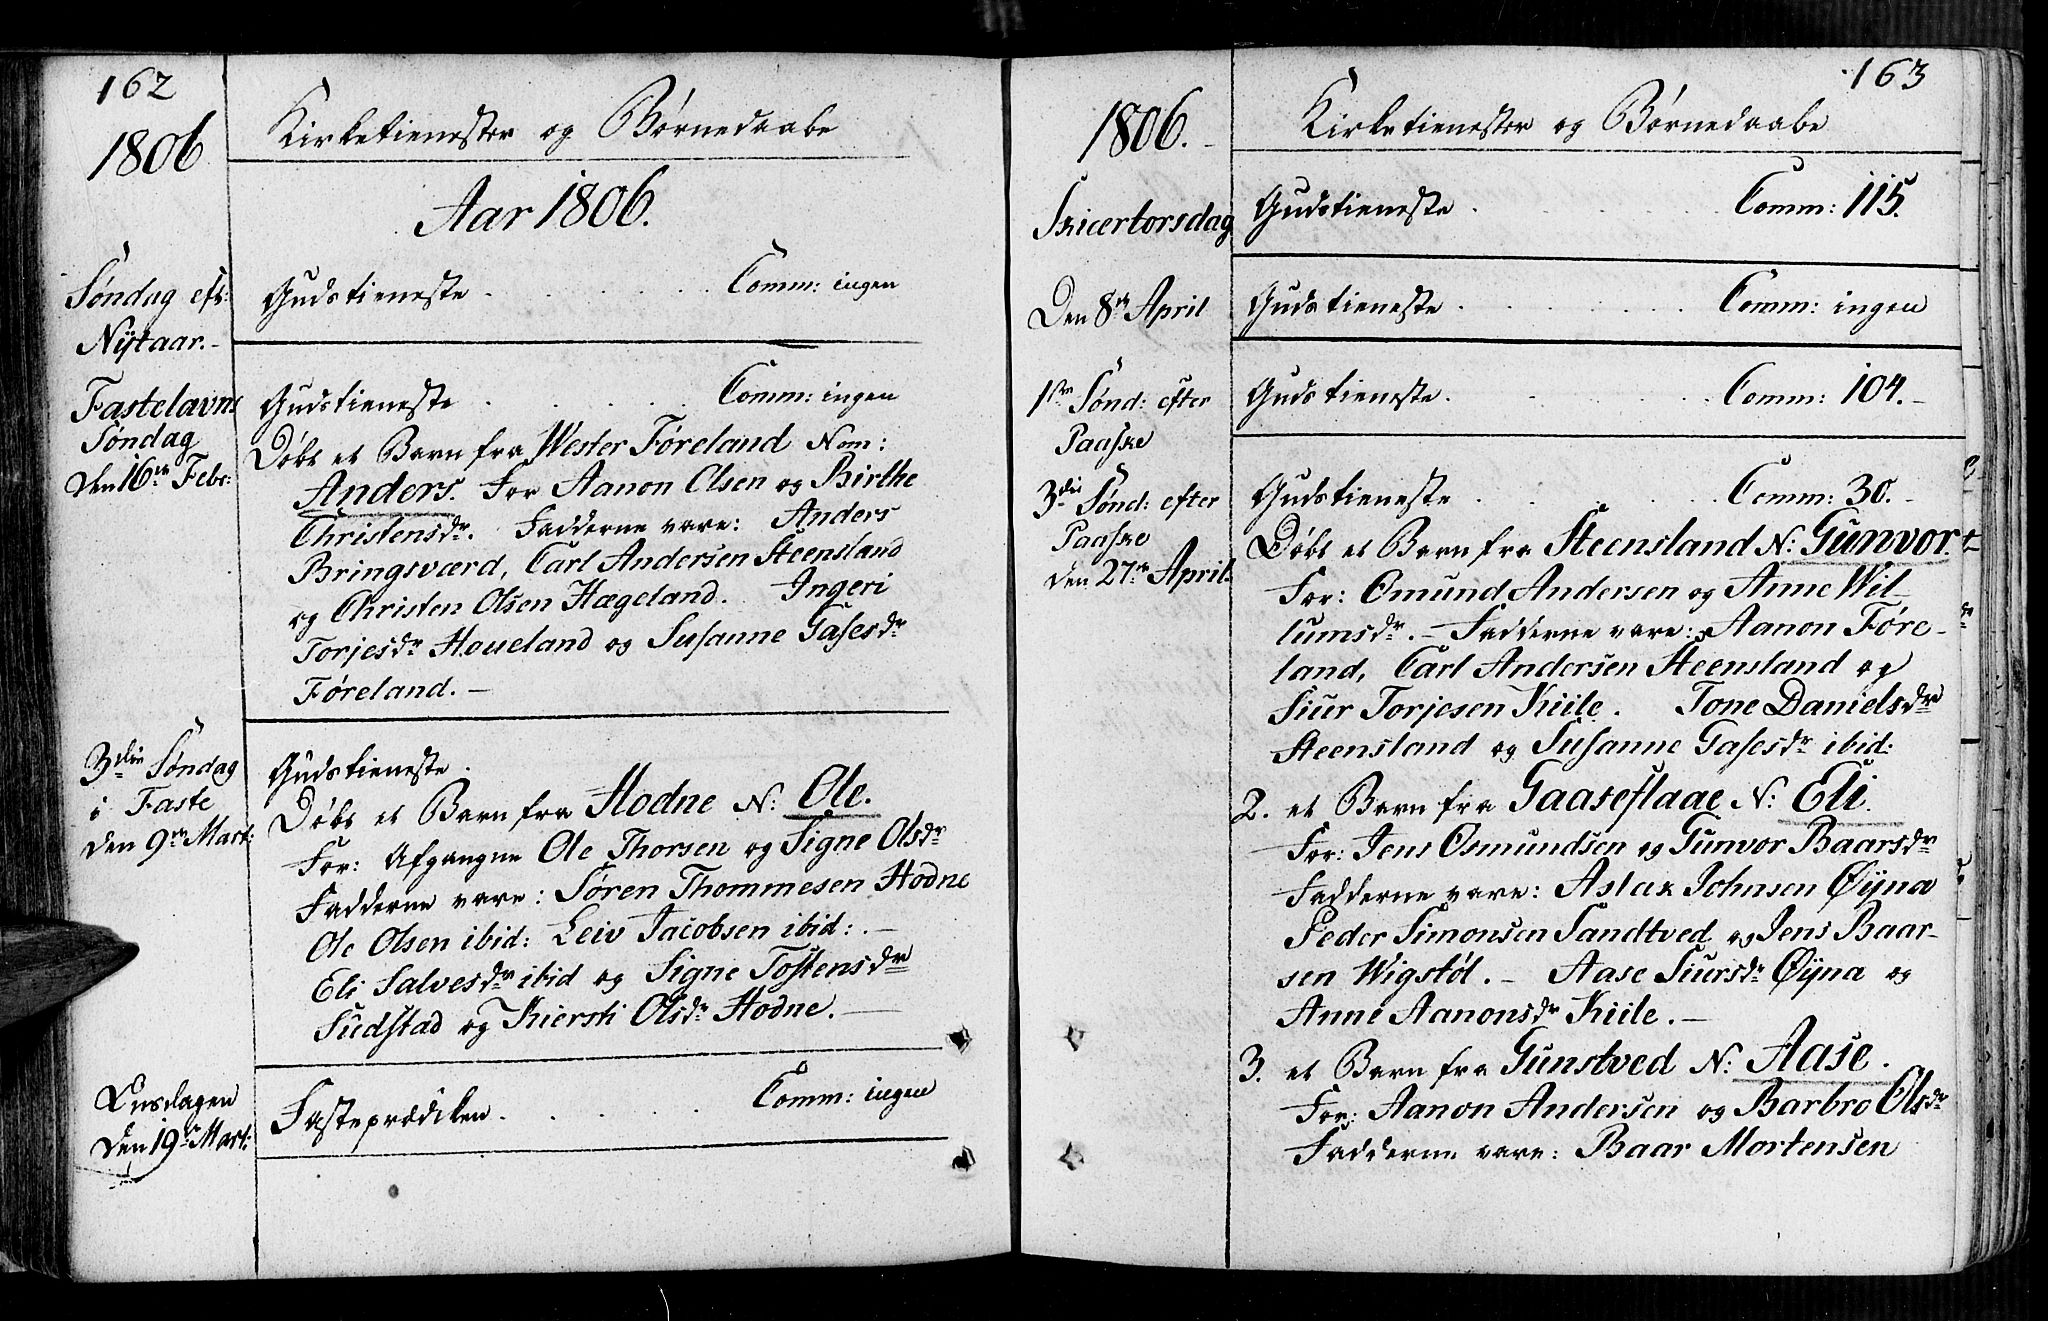 162
1806
Kirketienester og Børnedaabe
Aar 1806.
Søndag eft:
Nÿtaar.-
Gudstieneste . . . . . Comm: ingen
Fastelavns
Søndag
den 16de Febr:
Gudstieneste . . . . . Comm: ingen
Døbt et Barn fra Wester Føreland Nom:
Anders. For Aanon Olsen og Birthe
Christensdr. Fadderne vare: Anders
Bringsværd, Carl Andersen Steensland
og Christen Olsen Hægeland. Ingeri
Torjesdr Houeland og Susanne Gasesdr
Føreland.-
3die Søndag
i Faste
den 9de Mart:
Gudstieneste.
Døbt et Barn fra Hodne N: Ole.
For: Afgangne Ole Thorsen og Signe Olsdr
Fadderne vare: Søren Thommesen Hodne
Ole Olsen ibid: Leiv Jacobsen ibid: .-
Eli Salvesdr ibid og Signe Tostensdr
Sudstad og Kiersti Olsdr Hodne.-
Onsdagen
den 19de Mart:
Fasteprædiken . . . . . Comm: ingen
163
1806.
Kirketienester og Børnedaabe
Skiertorsdag
Gudstieneste . . . . . Comm: 115.
Den 8de April
Gudstieneste . . . . . Comm: ingen
1ste Sønd: efter
Paaske
Gudstieneste . . . . . Comm: 104.-
3die Sønd: efter
Paaske
den 27de April.
Gudstieneste . . . . . Comm: 30.-
Døbt et Barn fra Steensland N: Gunvor.
For: Omund Andersen og Anne Wil-
lumsdr.- Fadderne vare: Aanon Føre-
land, Carl Andersen Steensland og
Siur Torjesen Kiile. Tone Danielsdr
Steensland og Susanne Gasesdr ibid:
2. et Barn fra Gaaseflaae N: Eli.
For: Jens Osmundsen og Gunvor Baarsdr
Fadderne vare: Aslak Johnsen Øÿna
Peder Simonsen Sandtved og Jens Baar-
sen Wigstøl.- Aase Siursdr Øÿna og
Anne Aanonsdr Kiile.-
3. et Barn fra Gunstved N: Aase.
For: Aanon Andersen og Barbro Olsdr
Fadderne vare: Baar Mortensen